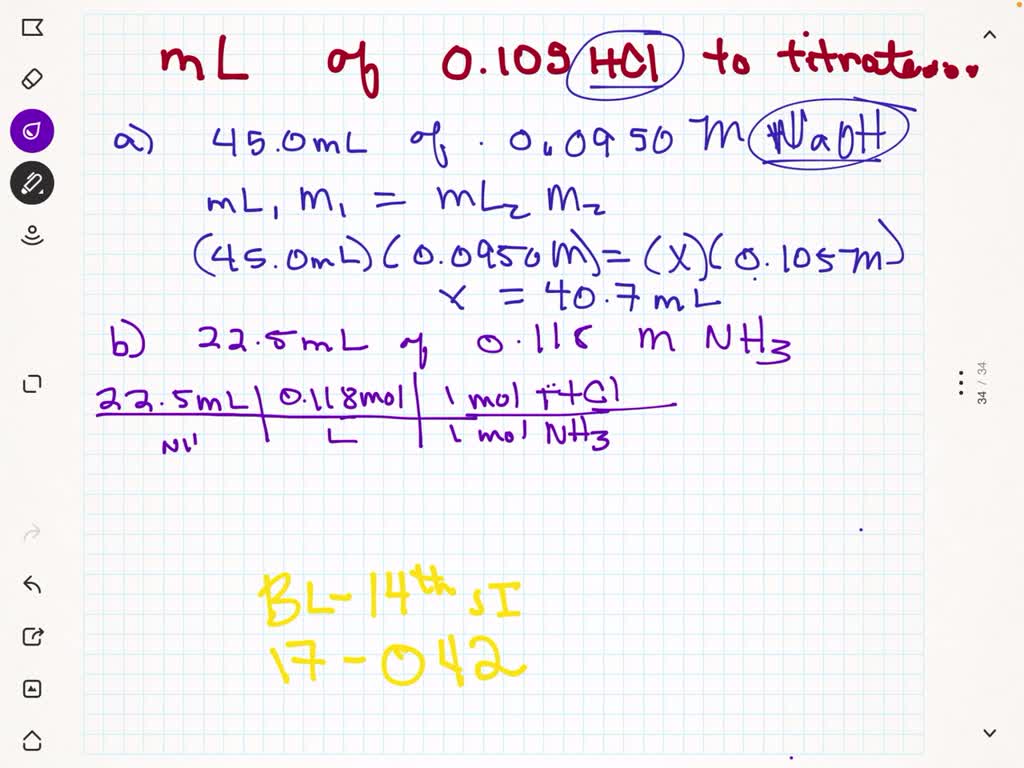 mL of 0.105 HCl to titrate....
a) 45.0mL of 0.0950 M NaOH
mL₁ M₁ = mL₂ M₂
(45.0mL)(0.0950M)=(X)(0.105M)
x = 40.7mL
b) 22.5mL of 0.118 m NH₃
22.5mL | 0.118mol | 1 mol HCl
L | 1 mol NH₃
34 / 34
BL-14th SI
17-042